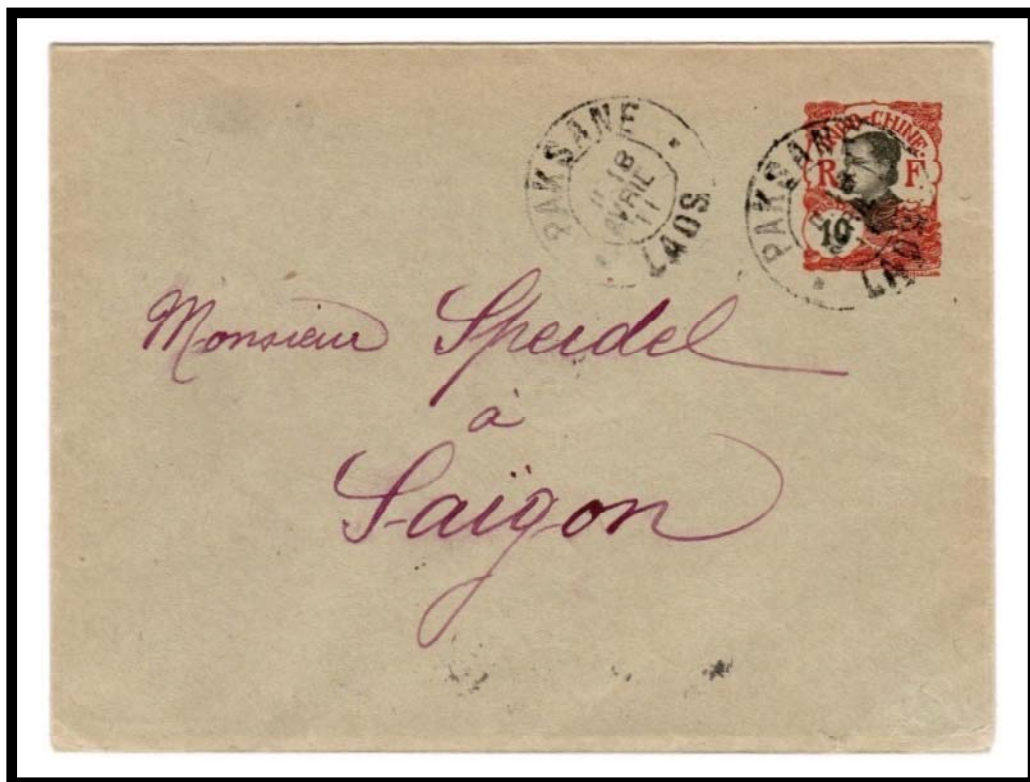 PAKSANE
18
AVRIL
11
LAOS
INDO-CHINE
R F
10
PAKSANE
LAOS
Monsieur Speidel
à
Saïgon